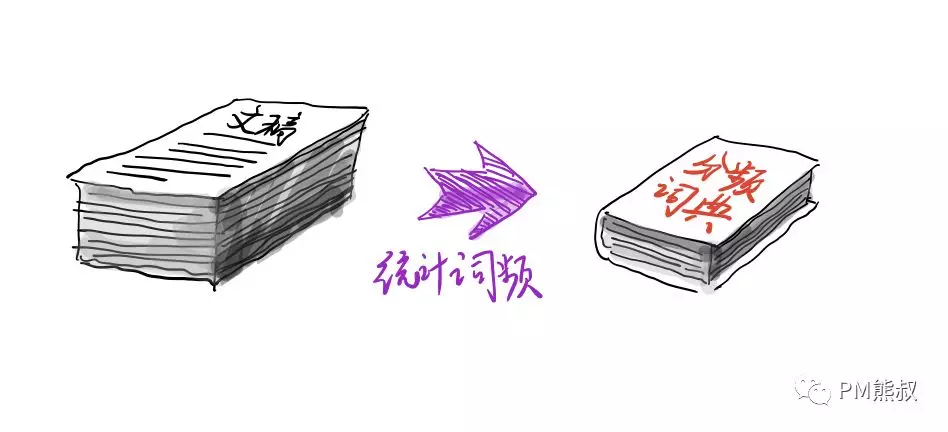 文稿
统计词频
分频
词典
PM熊叔